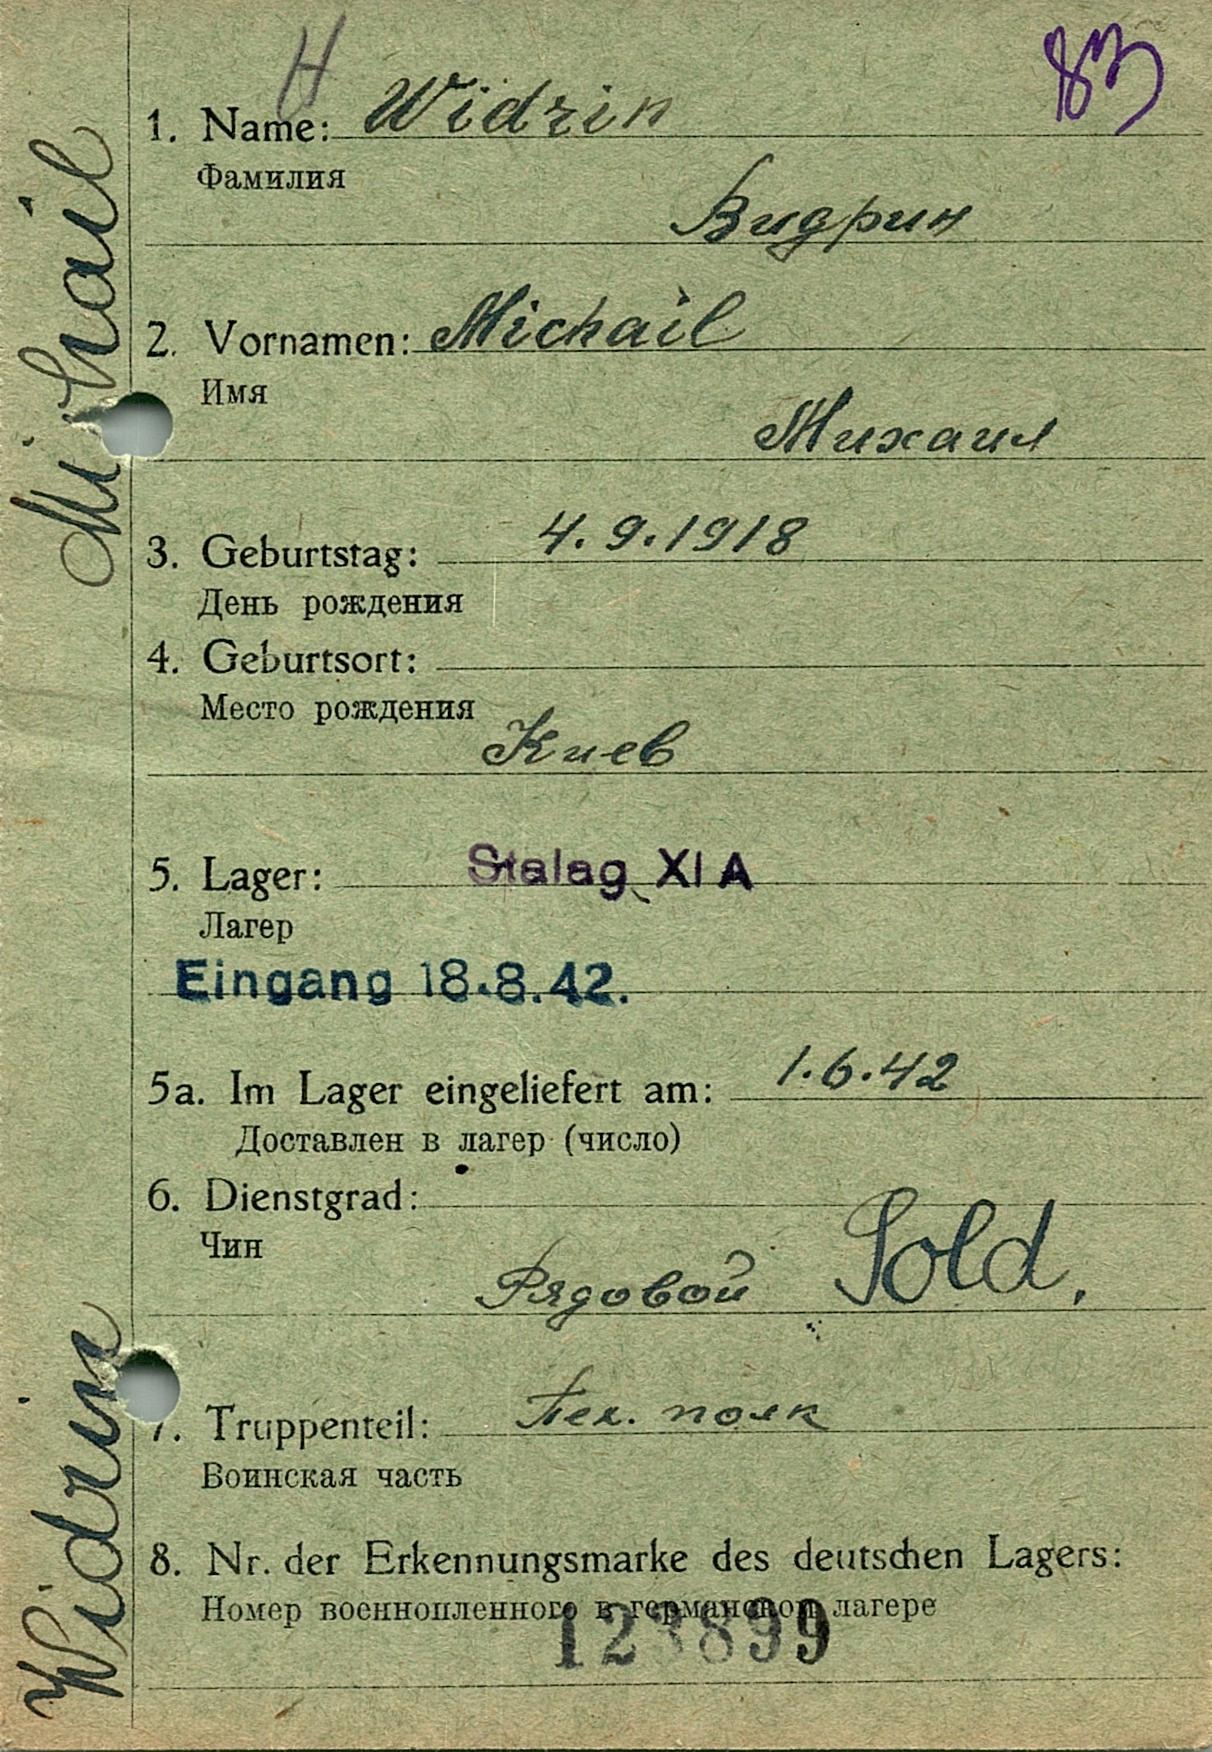 H
83
1. Name: Widrin
Фамилия
Видрин
2. Vornamen: Michail
Имя
Михаил
3. Geburtstag: 4.9.1918
День рождения
4. Geburtsort:
Место рождения
Киев
5. Lager: Stalag XI A
Лагер
Eingang 18.8.42.
5a. Im Lager eingeliefert am: 1.6.42
Доставлен в лагер (число)
6. Dienstgrad:
Чин
Рядовой Sold.
7. Truppenteil: Пех. полк
Воинская часть
8. Nr. der Erkennungsmarke des deutschen Lagers:
Номер военнопленного в германском лагере
123899
Widrin Michail